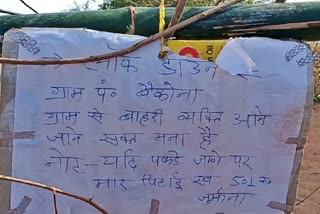 लॉक डाउन
ग्राम पं० बैकोना
ग्राम से बाहरी व्यक्ति आने
जाने सक्त मना है
नोट - यदि पकडे जाने पर
मार पिटाई रख 501 रु०
जुर्माना